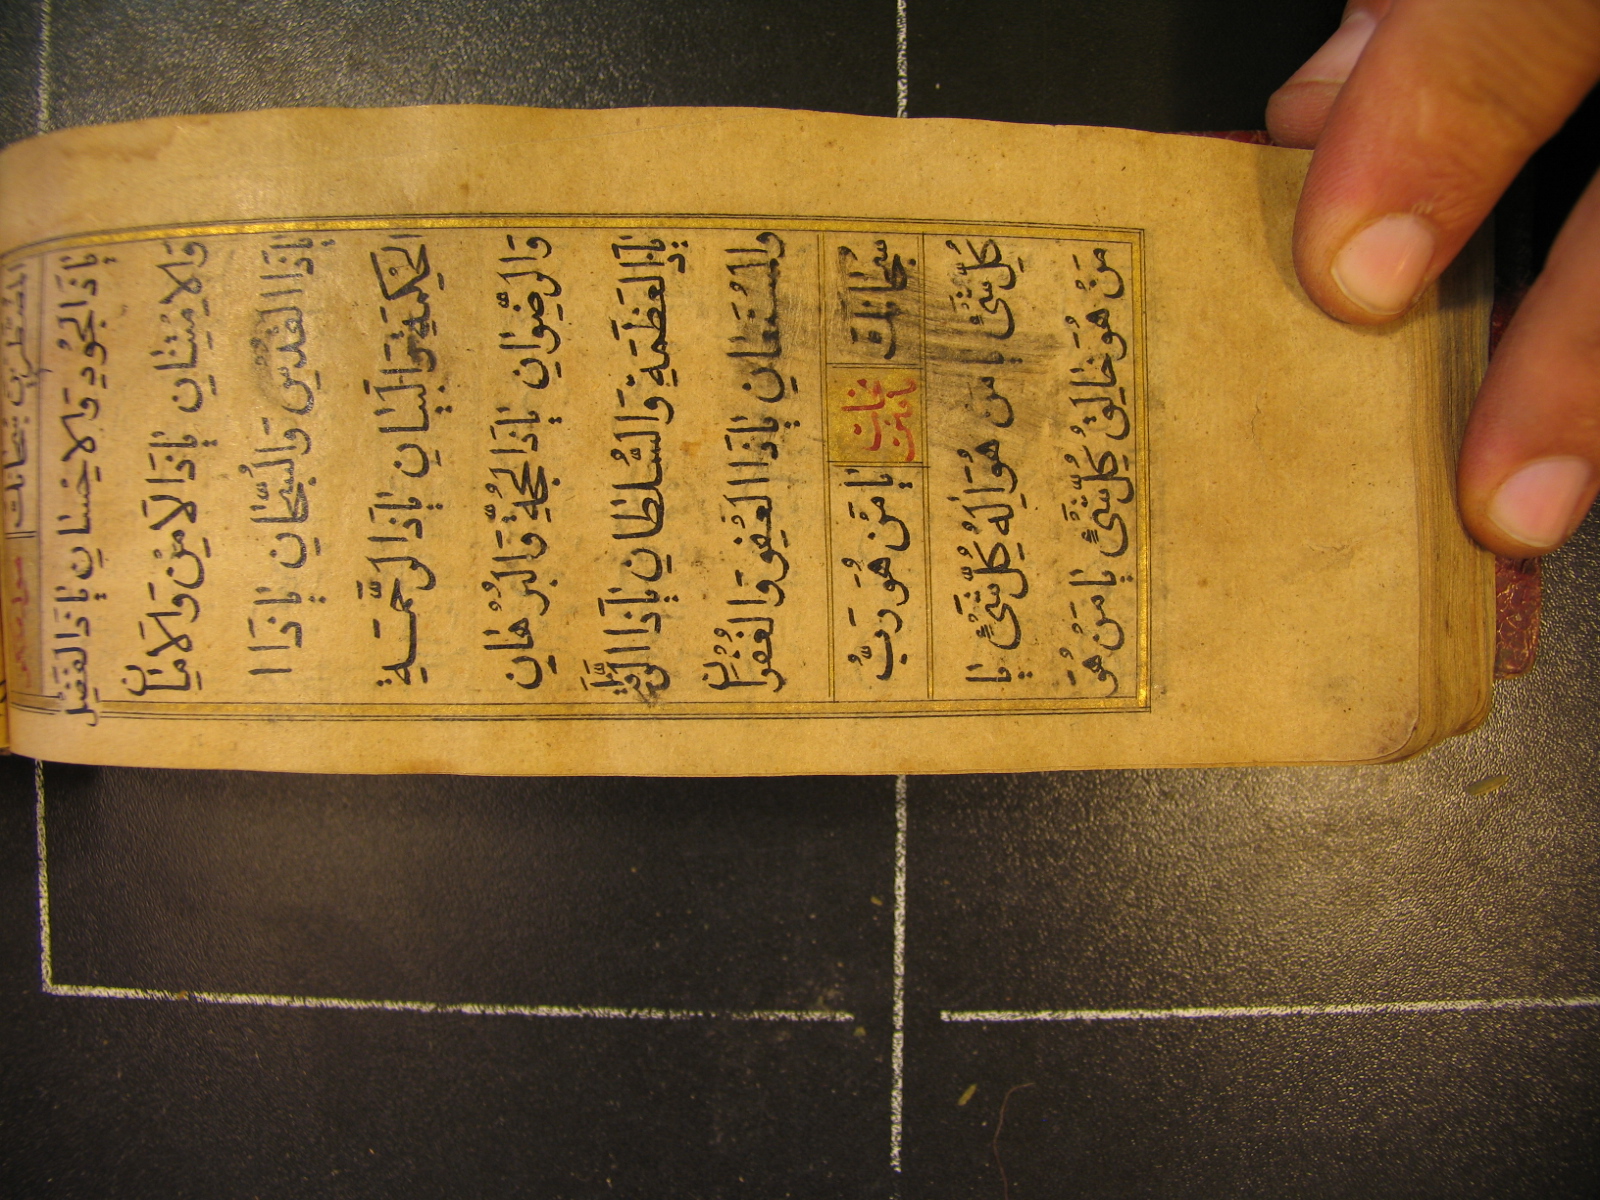 المضطرين سبحانك
يَاذَا الْجُودِ وَالْاِحْسَانِ يَاذَا الْفَضْلِ
وَالْاِمْتِنَانِ يَاذَا الْاَمْنِ وَالْاَمَانِ
يَاذَا الْقُدْسِ وَالسُّبْحَانِ يَاذَا ا
الْحِكْمَةِ وَالْبَيَانِ يَاذَا الرَّحْمَةِ
وَالرِّضْوَانِ يَاذَا الْحُجَّةِ وَالْبُرْهَانِ
يَاذَا الْعَظَمَةِ وَالسُّلْطَانِ يَاذَا الرَّأْفَةِ
وَالْمُسْتَعَانِ يَاذَا الْعَفْوِ وَالْغُفْرَانِ
سُبْحَانَكَ يَا مَنْ هُوَ رَبُّ
كُلِّ شَيْءٍ يَا مَنْ هُوَ اِلٰهُ كُلِّ شَيْءٍ يَا
مَنْ هُوَ خَالِقُ كُلِّ شَيْءٍ يَا مَنْ هُوَ